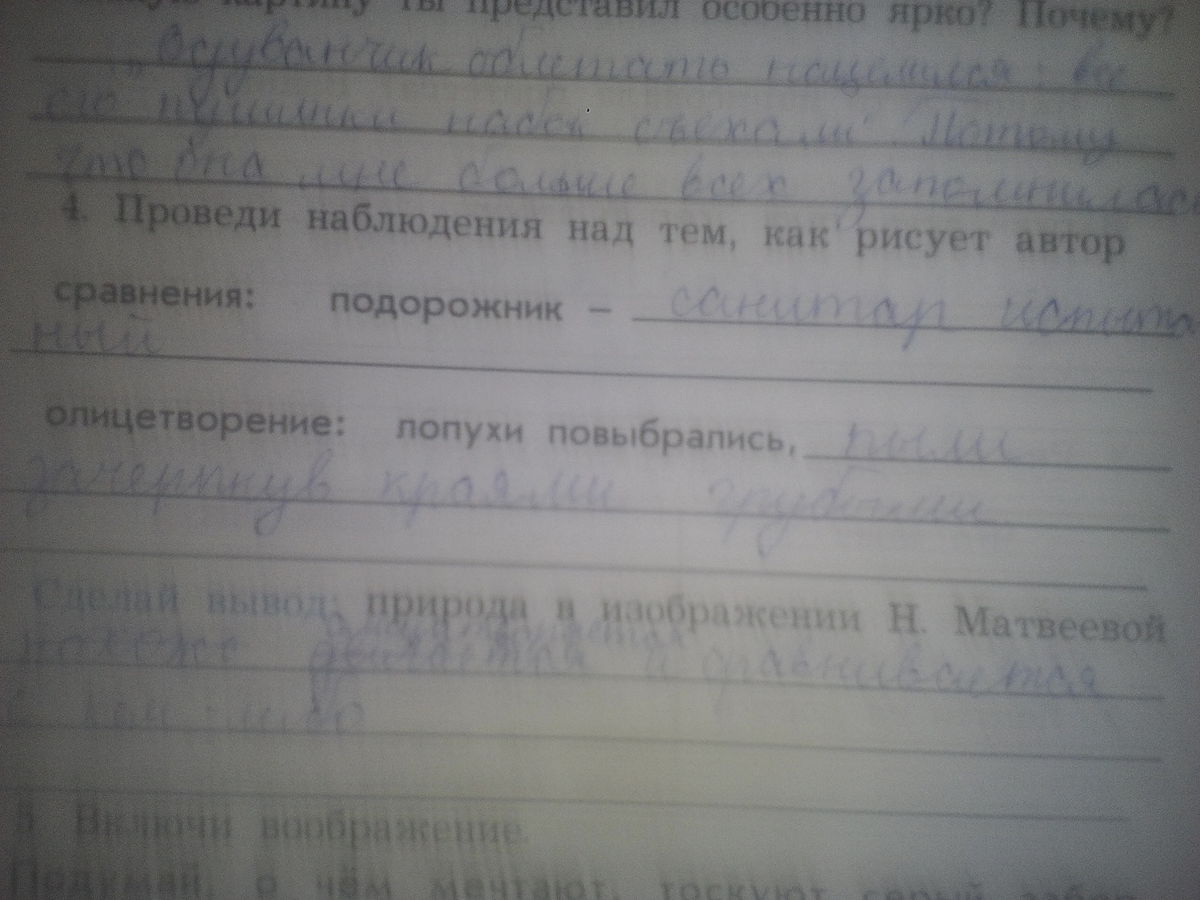 картину ты представил особенно ярко? Почему?
"Одуванчик облетать нацелился: все
его пушинки набок съехали" Потому
что она мне больше всех запомнилась
4. Проведи наблюдения над тем, как рисует автор
сравнения: подорожник – санитар испыта
ный
олицетворение: лопухи повыбрались, пыли
зачерпнув краями грубыми
Сделай вывод: природа в изображении Н. Матвеевой
похоже и сравнивается
с
5. Включи воображение.
Подумай, о чём мечтают, тоскуют серый забор